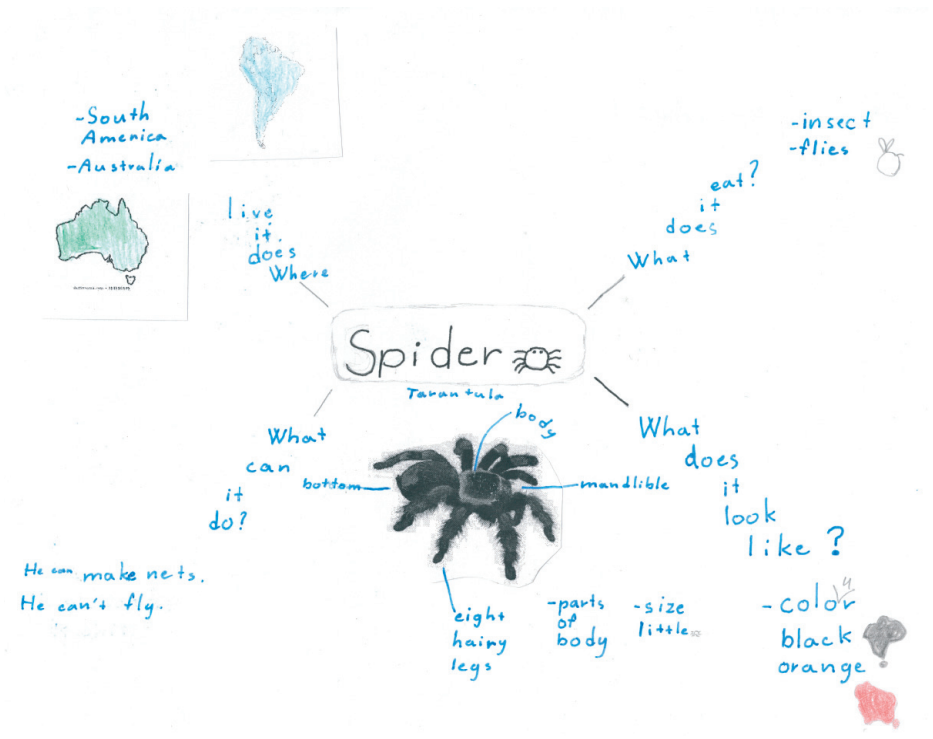 -South
America
-Australia
live
it
does
Where
-insect
-flies
eat?
it
does
What
Spider
Tarantula
body
bottom
mandlible
What
can
it
do?
He can make nets.
He can't fly.
What
does
it
look
like ?
eight
hairy
legs
-parts
of
body
-size
little
-color
u
black
orange